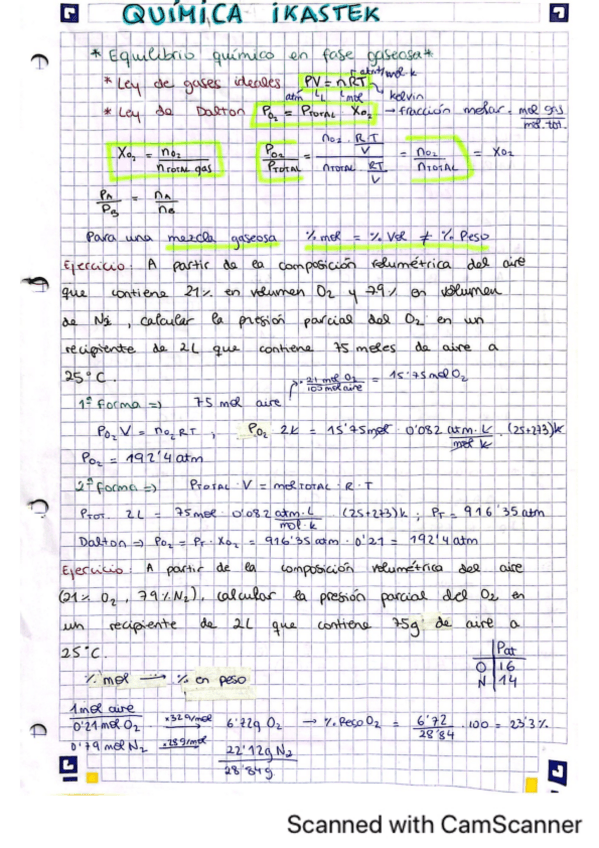 QUÍMICA IKASTEK
* Equilibrio químico en fase gaseosa *
* Ley de gases ideales PV = nRT atm·L/mol·k
atm L mol kelvin
* Ley de Dalton P_O2 = P_TOTAL · X_O2 → fracción molar = mol gas / mol tot.
X_O2 = n_O2 / n_TOTAL gas   P_O2 / P_TOTAL = (n_O2 · R·T/V) / (n_TOTAL · RT/V) = n_O2 / n_TOTAL = X_O2
P_A / P_B = n_A / n_B
Para una mezcla gaseosa % mol = % Vol ≠ % Peso
Ejercicio: A partir de la composición volumétrica del aire
que contiene 21% en volumen O2 y 79% en volumen
de N2, calcular la presión parcial del O2 en un
recipiente de 2L que contiene 75 moles de aire a
25°C.
1ª forma => 75 mol aire · 21 mol O2 / 100 mol aire = 15'75 mol O2
P_O2 V = n_O2 RT ; P_O2 · 2L = 15'75 mol · 0'082 atm·L / mol·k · (25+273)k
P_O2 = 192'4 atm
2ª forma => P_TOTAL · V = mol TOTAL · R · T
P_TOT · 2L = 75 mol · 0'082 atm·L / mol·k · (25+273)k ; P_T = 916'35 atm
Dalton => P_O2 = P_T · X_O2 = 916'35 atm · 0'21 = 192'4 atm
Ejercicio: A partir de la composición volumétrica del aire
(21% O2, 79% N2), calcular la presión parcial del O2 en
un recipiente de 2L que contiene 75g de aire a
25°C.
Pat
O 16
N 14
% mol → % en peso
1 mol aire
0'21 mol O2 x32 g/mol → 6'72g O2 → % Peso O2 = 6'72 / 28'84 · 100 = 23'3%
0'79 mol N2 x28 g/mol → 22'12g N2
28'84g
Scanned with CamScanner